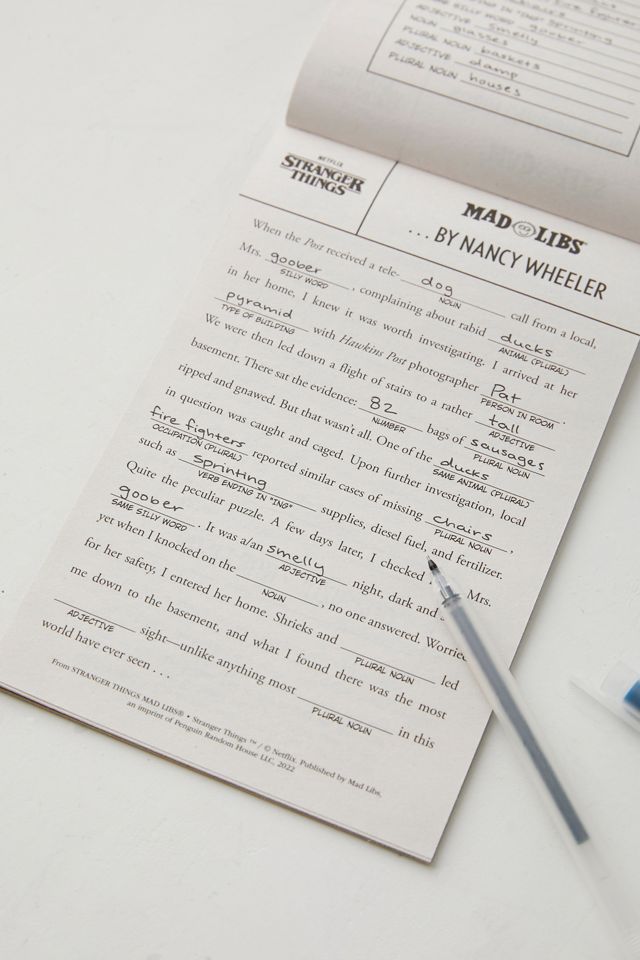 SAME SILLY WORD goober
ADJECTIVE smelly
NOUN glasses
PLURAL NOUN baskets
ADJECTIVE damp
PLURAL NOUN houses
NETFLIX
STRANGER
THINGS
MAD LIBS
...BY NANCY WHEELER
When the Post received a tele- dog call from a local,
NOUN
Mrs. goober, complaining about rabid ducks
SILLY WORD
ANIMAL (PLURAL)
in her home, I knew it was worth investigating. I arrived at her
pyramid with Hawkins Post photographer Pat.
TYPE OF BUILDING
PERSON IN ROOM
We were then led down a flight of stairs to a rather tall
ADJECTIVE
basement. There sat the evidence: 82 bags of sausages
NUMBER
PLURAL NOUN
ripped and gnawed. But that wasn't all. One of the ducks
SAME ANIMAL (PLURAL)
in question was caught and caged. Upon further investigation, local
fire fighters reported similar cases of missing chairs,
OCCUPATION (PLURAL)
PLURAL NOUN
such as sprinting supplies, diesel fuel, and fertilizer.
VERB ENDING IN "ING"
Quite the peculiar puzzle. A few days later, I checked Mrs.
goober. It was a/an smelly night, dark and
SAME SILLY WORD
ADJECTIVE
yet when I knocked on the , no one answered. Worried
NOUN
for her safety, I entered her home. Shrieks and led
PLURAL NOUN
me down to the basement, and what I found there was the most
sight—unlike anything most in this
ADJECTIVE
PLURAL NOUN
world have ever seen . . .
From STRANGER THINGS MAD LIBS® • Stranger Things ™ / © Netflix. Published by Mad Libs,
an imprint of Penguin Random House LLC, 2022